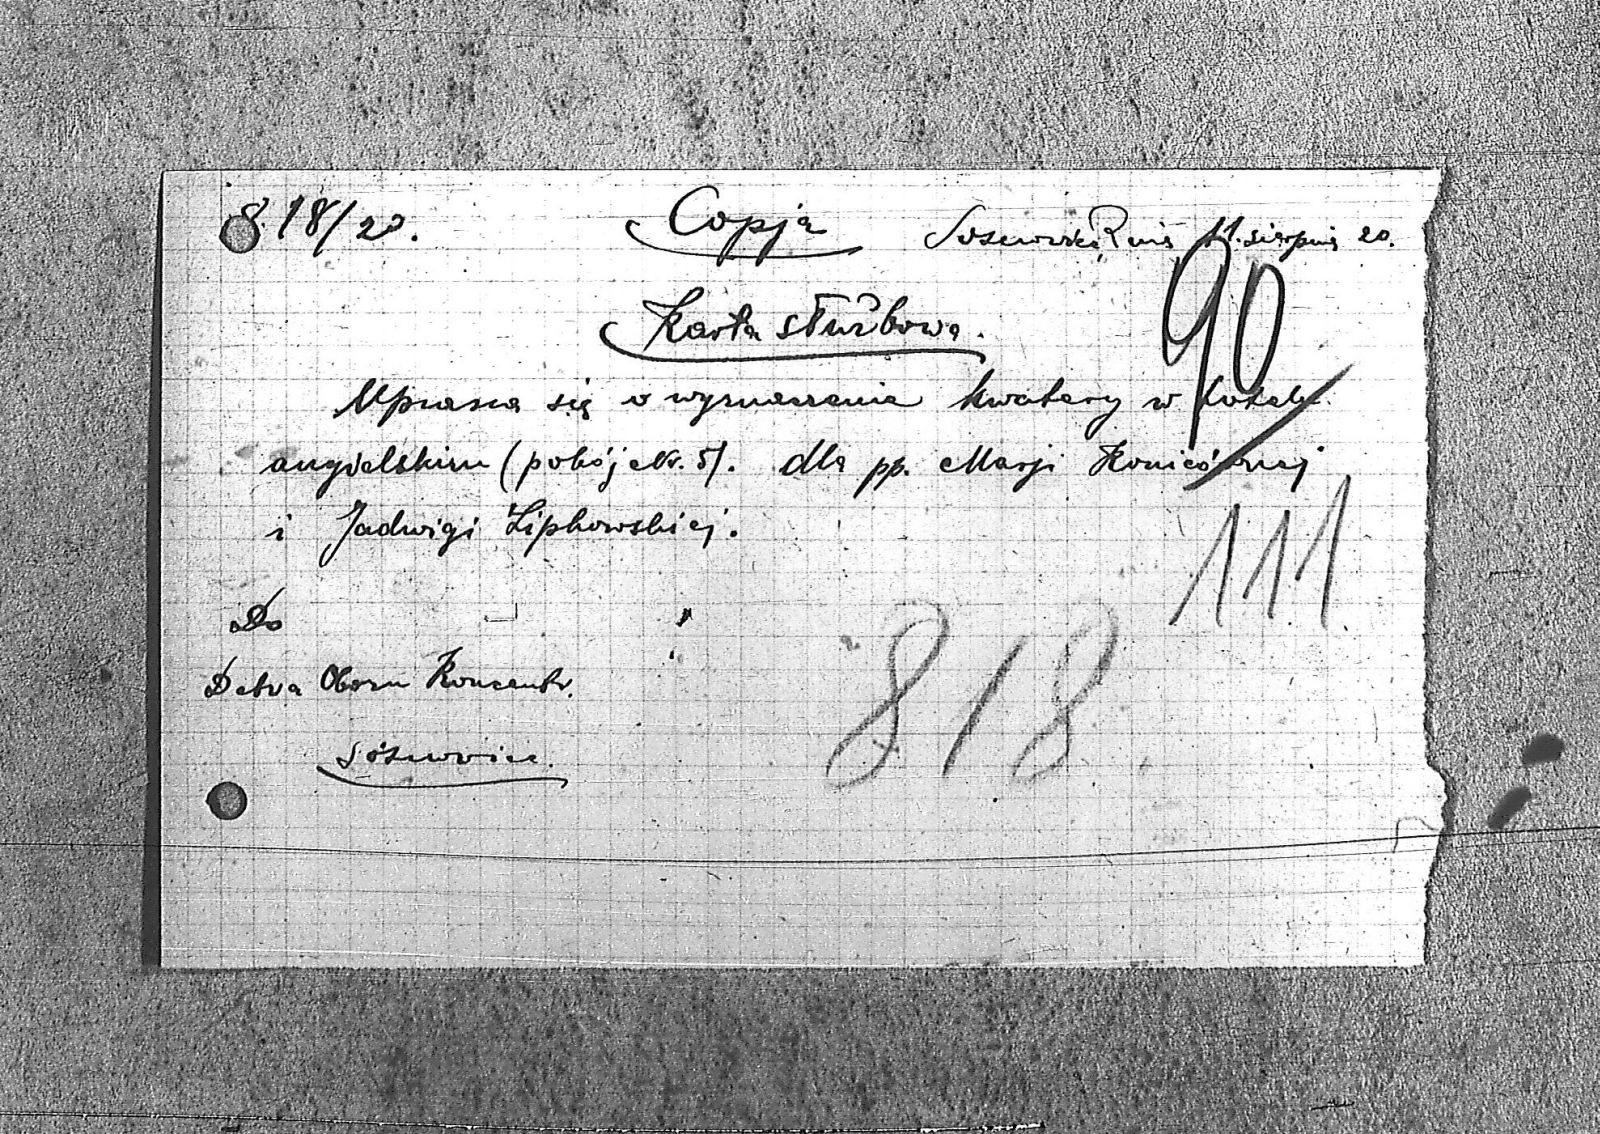 8.18/20. Copja Sosnowice 11. sierpnia 20.
90
Karta służbowa.
Uprasza się o wyznaczenie kwatery w hotelu
angielskim (pokój Nr. 5). dla pp. Marji
i Jadwigi Lipkowskiej.
111
Do
818
Dctwa Obozu Koncentr.
Sosnowice.